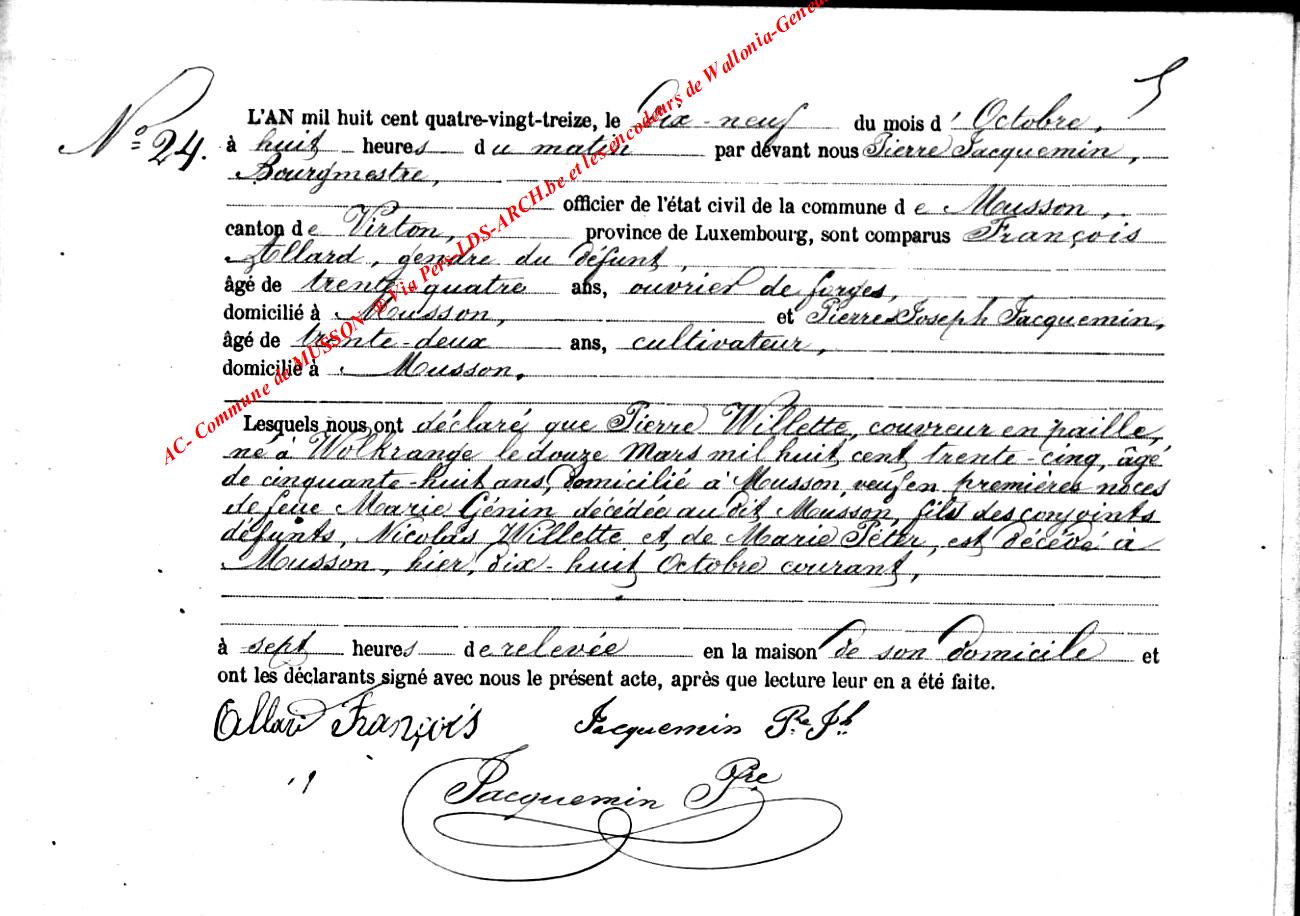 5
N° 24.
L'AN mil huit cent quatre-vingt-treize, le Dix-neuf du mois d'Octobre,
à huit heures du matin par devant nous Pierre Jacquemin,
Bourgmestre,
officier de l'état civil de la commune de Musson,
canton de Virton, province de Luxembourg, sont comparus François
Allard, gendre du défunt,
âgé de trente quatre ans, ouvrier de forges,
domicilié à Musson, et Pierre Joseph Jacquemin,
âgé de trente-deux ans, cultivateur,
domicilié à Musson.
Lesquels nous ont déclaré que Pierre Willette, couvreur en paille,
né à Wolkrange le douze Mars mil huit cent trente-cinq, âgé
de cinquante-huit ans, domicilié à Musson, veuf en premières noces
de feue Marie Génin décédée au dit Musson, fils des conjoints
défunts, Nicolas Willette et de Marie Péter, est décédé à
Musson, hier, dix-huit Octobre courant,
à sept heures de relevée en la maison de son domicile et
ont les déclarants signé avec nous le présent acte, après que lecture leur en a été faite.
Allard François Jacquemin Pre Jh
Jacquemin Pre
AC- Commune de MUSSON ® Via Pers-LDS-ARCH.be et les encodeurs de Wallonia-Geneal